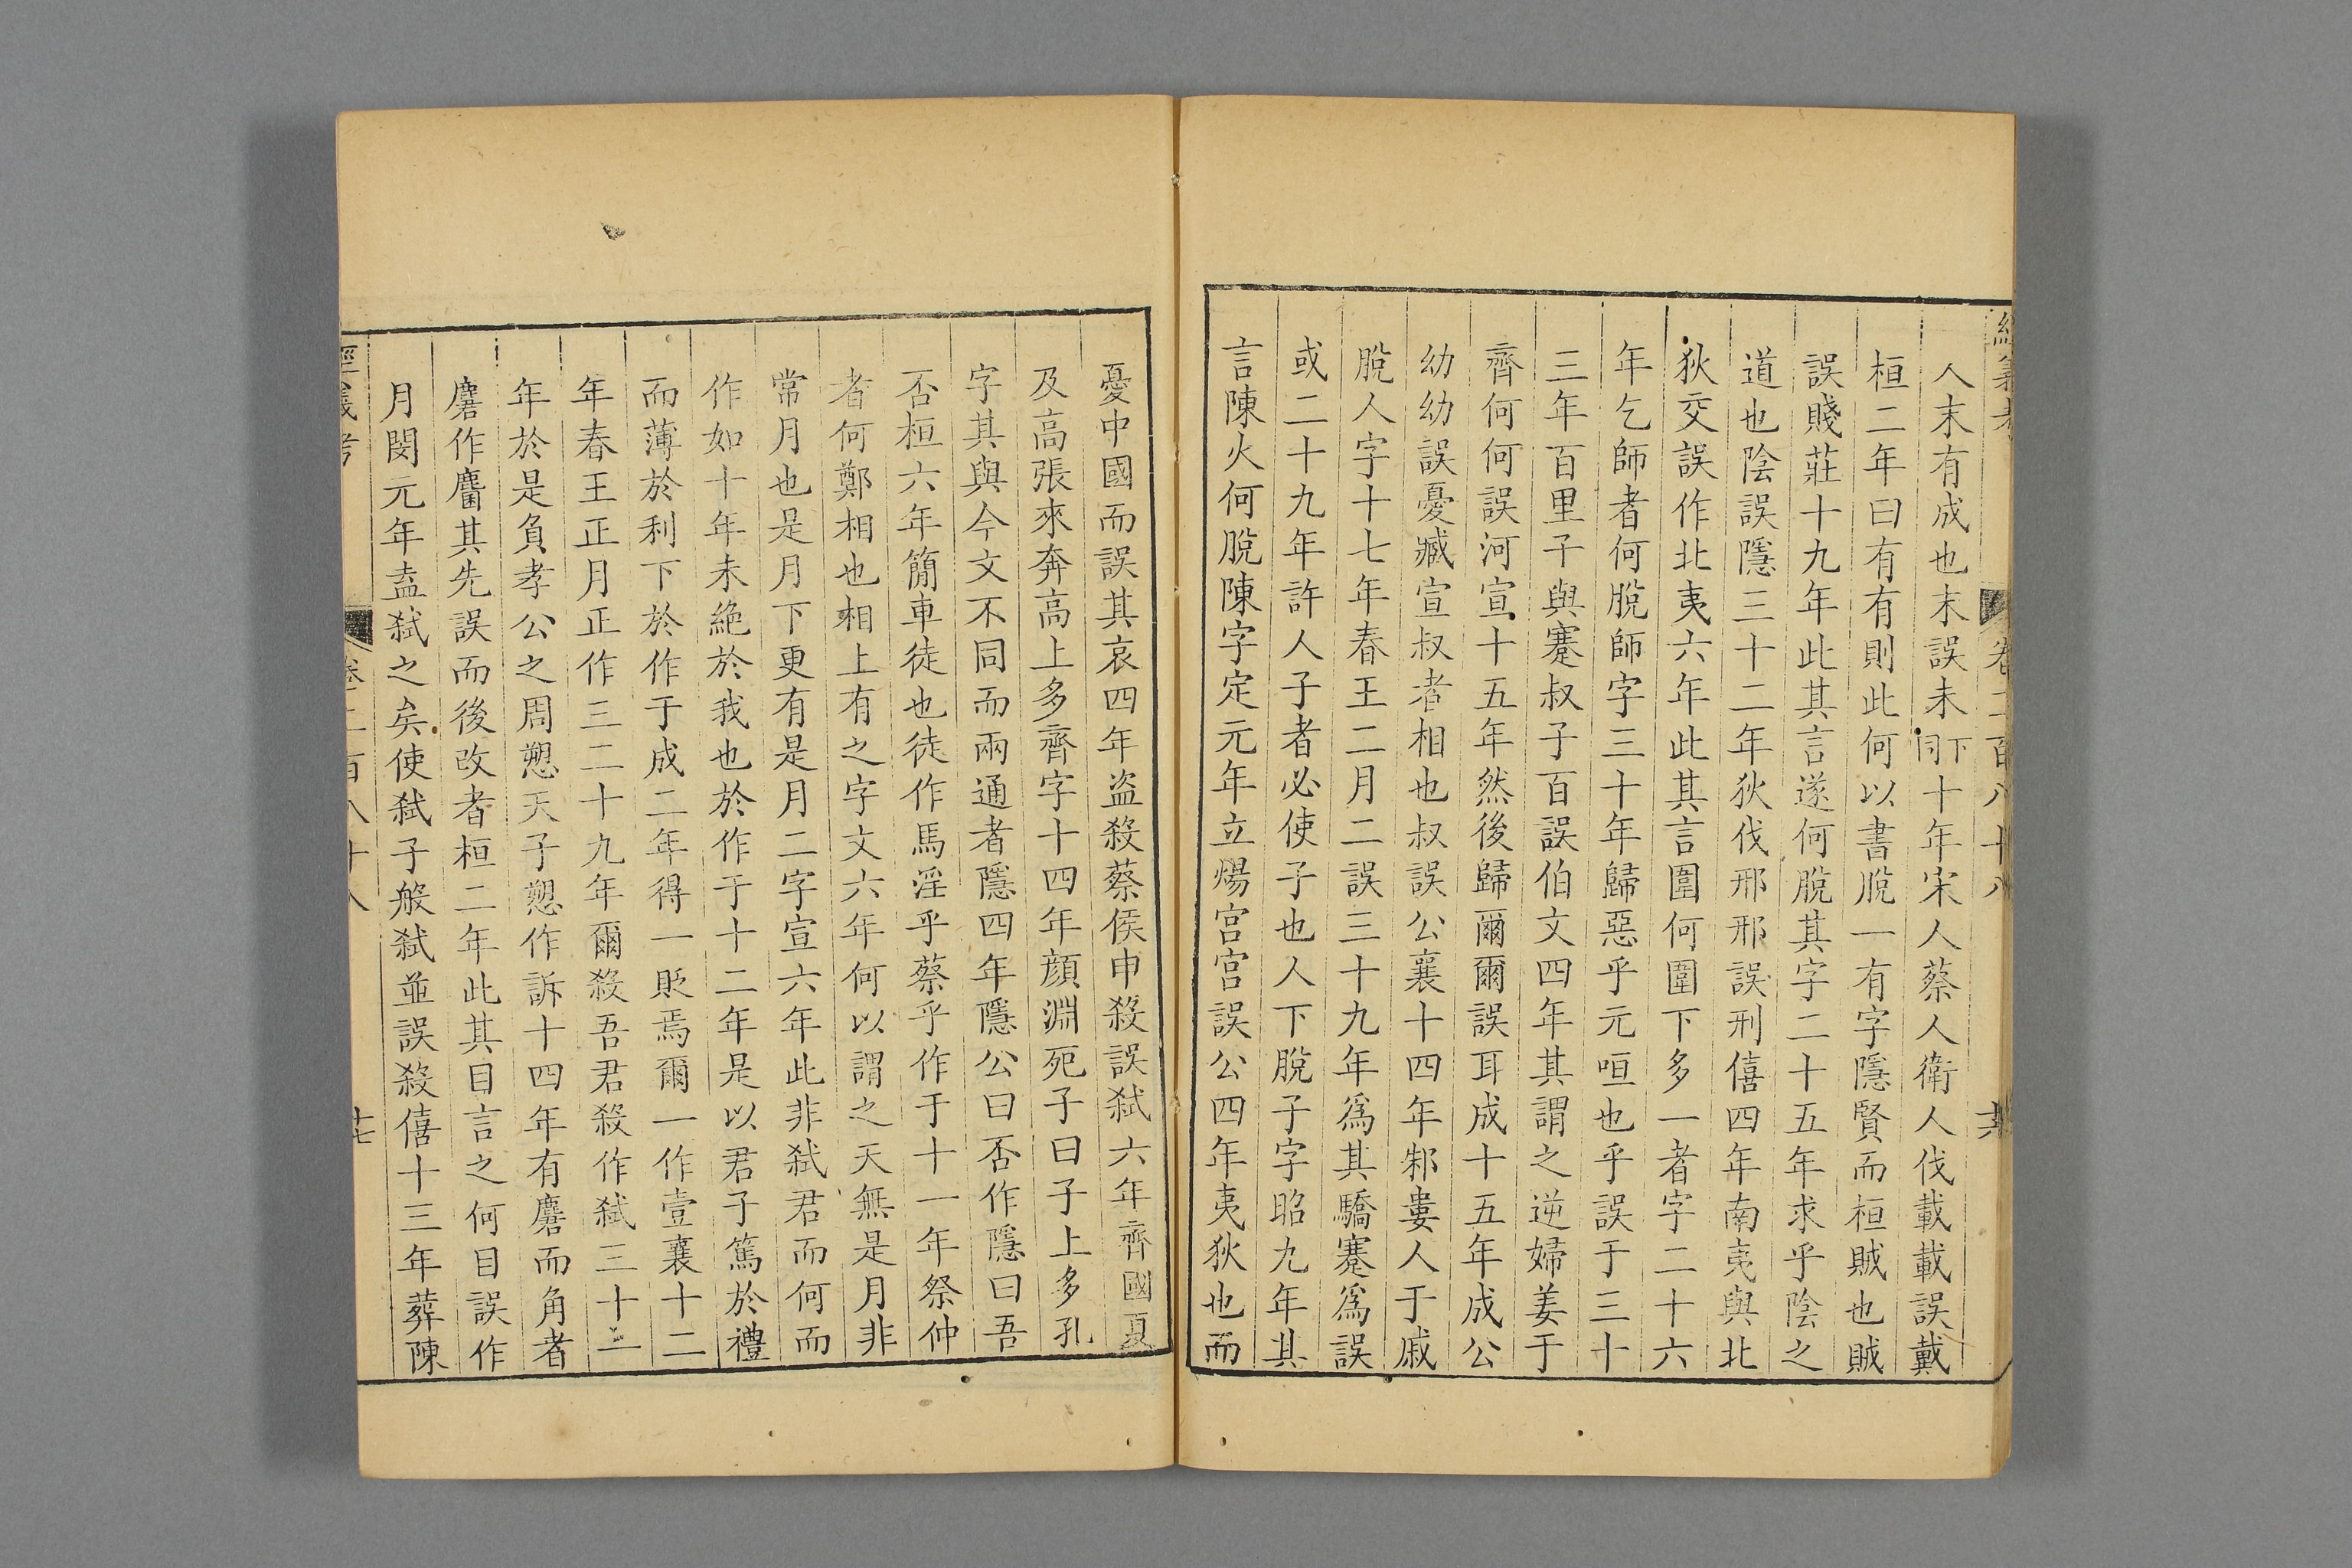 經義考 卷二百八十八 六
人末有成也末誤未下同十年宋人蔡人衛人伐載載誤戴
桓二年曰有有則此何以書脫一有字隱賢而桓賊也賊
誤賤莊十九年此其言遂何脫其字二十五年求乎陰之
道也陰誤隱三十二年狄伐邢邢誤刑僖四年南夷與北
狄交誤作北夷六年此其言圍何圍下多一者字二十六
年乞師者何脫師字三十年歸惡乎元咺也乎誤于三十
三年百里子與蹇叔子百誤伯文四年其謂之逆婦姜于
齊何何誤河宣十五年然後歸爾爾誤耳成十五年成公
幼幼誤憂臧宣叔者相也叔誤公襄十四年邾婁人于戚
脫人字十七年春王二月二誤三十九年爲其驕蹇爲誤
或二十九年許人子者必使子也人下脫子字昭九年其
言陳火何脫陳字定元年立煬宮宮誤公四年夷狄也而
憂中國而誤其哀四年盜殺蔡侯申殺誤弑六年齊國夏
及高張來奔高上多齊字十四年顔淵死子曰子上多孔
字其與今文不同而兩通者隱四年隱公曰否作隱曰吾
否桓六年簡車徒也徒作馬淫乎蔡乎作于十一年祭仲
者何鄭相也相上有之字文六年何以謂之天無是月非
常月也是月下更有是月二字宣六年此非弑君而何而
作如十年未絕於我也於作于十二年是以君子篤於禮
而薄於利下於作于成二年得一貶焉爾一作壹襄十二
年春王正月正作三二十九年爾殺吾君殺作弑三十一
年於是負孝公之周愬天子愬作訴十四年有麏而角者
麏作麕其先誤而後改者桓二年此其目言之何目誤作
月閔元年盍弑之矣使弑子般弑並誤殺僖十三年葬陳
經義考 卷二百八十八 十七